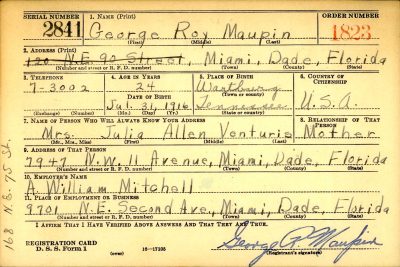 SERIAL NUMBER 1. NAME (Print) ORDER NUMBER
2841 George Roy Maupin 1823
(First) (Middle) (Last)
2. ADDRESS (Print)
120 N.E. 90 Street, Miami, Dade, Florida
(Number and street or R. F. D. number) (Town) (County) (State)
3. TELEPHONE 4. AGE IN YEARS 5. PLACE OF BIRTH 6. COUNTRY OF CITIZENSHIP
7-3002 24 Wartburg
DATE OF BIRTH (Town or county)
Jul. 31, 1916 Tennessee U.S.A.
(Exchange) (Number) (Mo.) (Day) (Yr.) (State or country)
7. NAME OF PERSON WHO WILL ALWAYS KNOW YOUR ADDRESS 8. RELATIONSHIP OF THAT PERSON
Mrs. Julia Allen Venturis Mother
(Mr., Mrs., Miss) (First) (Middle) (Last)
9. ADDRESS OF THAT PERSON
7947 N.W. 11 Avenue, Miami, Dade, Florida
(Number and street or R. F. D. number) (Town) (County) (State)
10. EMPLOYER'S NAME
A. William Mitchell
11. PLACE OF EMPLOYMENT OR BUSINESS
9701 N.E. Second Ave, Miami, Dade, Florida
(Number and street or R. F. D. number) (Town) (County) (State)
I AFFIRM THAT I HAVE VERIFIED ABOVE ANSWERS AND THAT THEY ARE TRUE.
REGISTRATION CARD
D. S. S. Form 1 (over) 16—17105 George R. Maupin
(Registrant's signature)
168 N.E. 75 St.